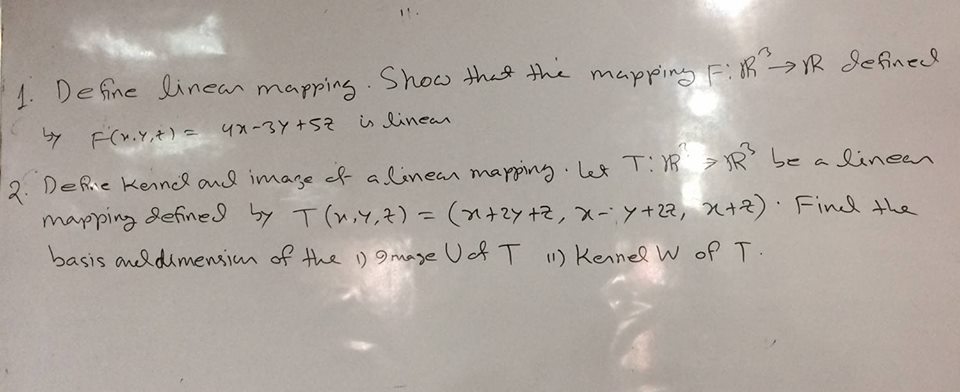 1. Define linear mapping. Show that the mapping F: ℝ³ → ℝ defined
by F(x,y,z) = 4x-3y+5z is linear
2. Define Kernel and image of a linear mapping. Let T: ℝ³ → ℝ³ be a linear
mapping defined by T(x,y,z) = (x+2y+z, x-y+2z, x+z). Find the
basis and dimension of the i) Image U of T ii) Kernel W of T.